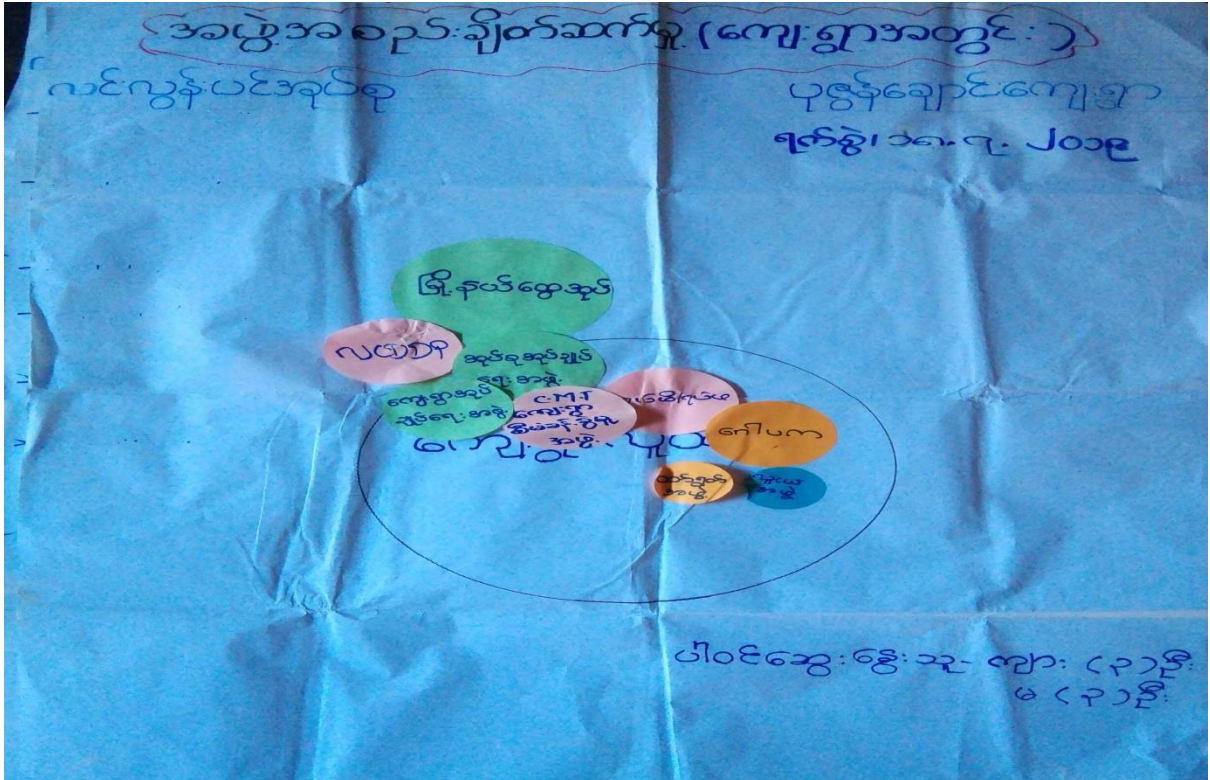 အဖွဲ့အစည်းချိတ်ဆက်မှု (ကျေးရွာအတွင်း)
လင်းလွန်းပင်အုပ်စု
ပုဇွန်ချောင်းကျေးရွာ
ရက်စွဲ၊ ၁၈.၇.၂၀၁၉
မြို့နယ်ထွေအုပ်
အုပ်စုအုပ်ချုပ်
ရေးအဖွဲ့
ကျေးရွာအုပ်
ချုပ်ရေးအဖွဲ့
C.M.T
ကျေးရွာ
စီမံခန့်ခွဲမှု
အဖွဲ့
ဂေါပက
အဖွဲ့
အဖွဲ့
ပါဝင်ဆွေးနွေးသူ- ကျား (၃)ဦး
မ (၃)ဦး